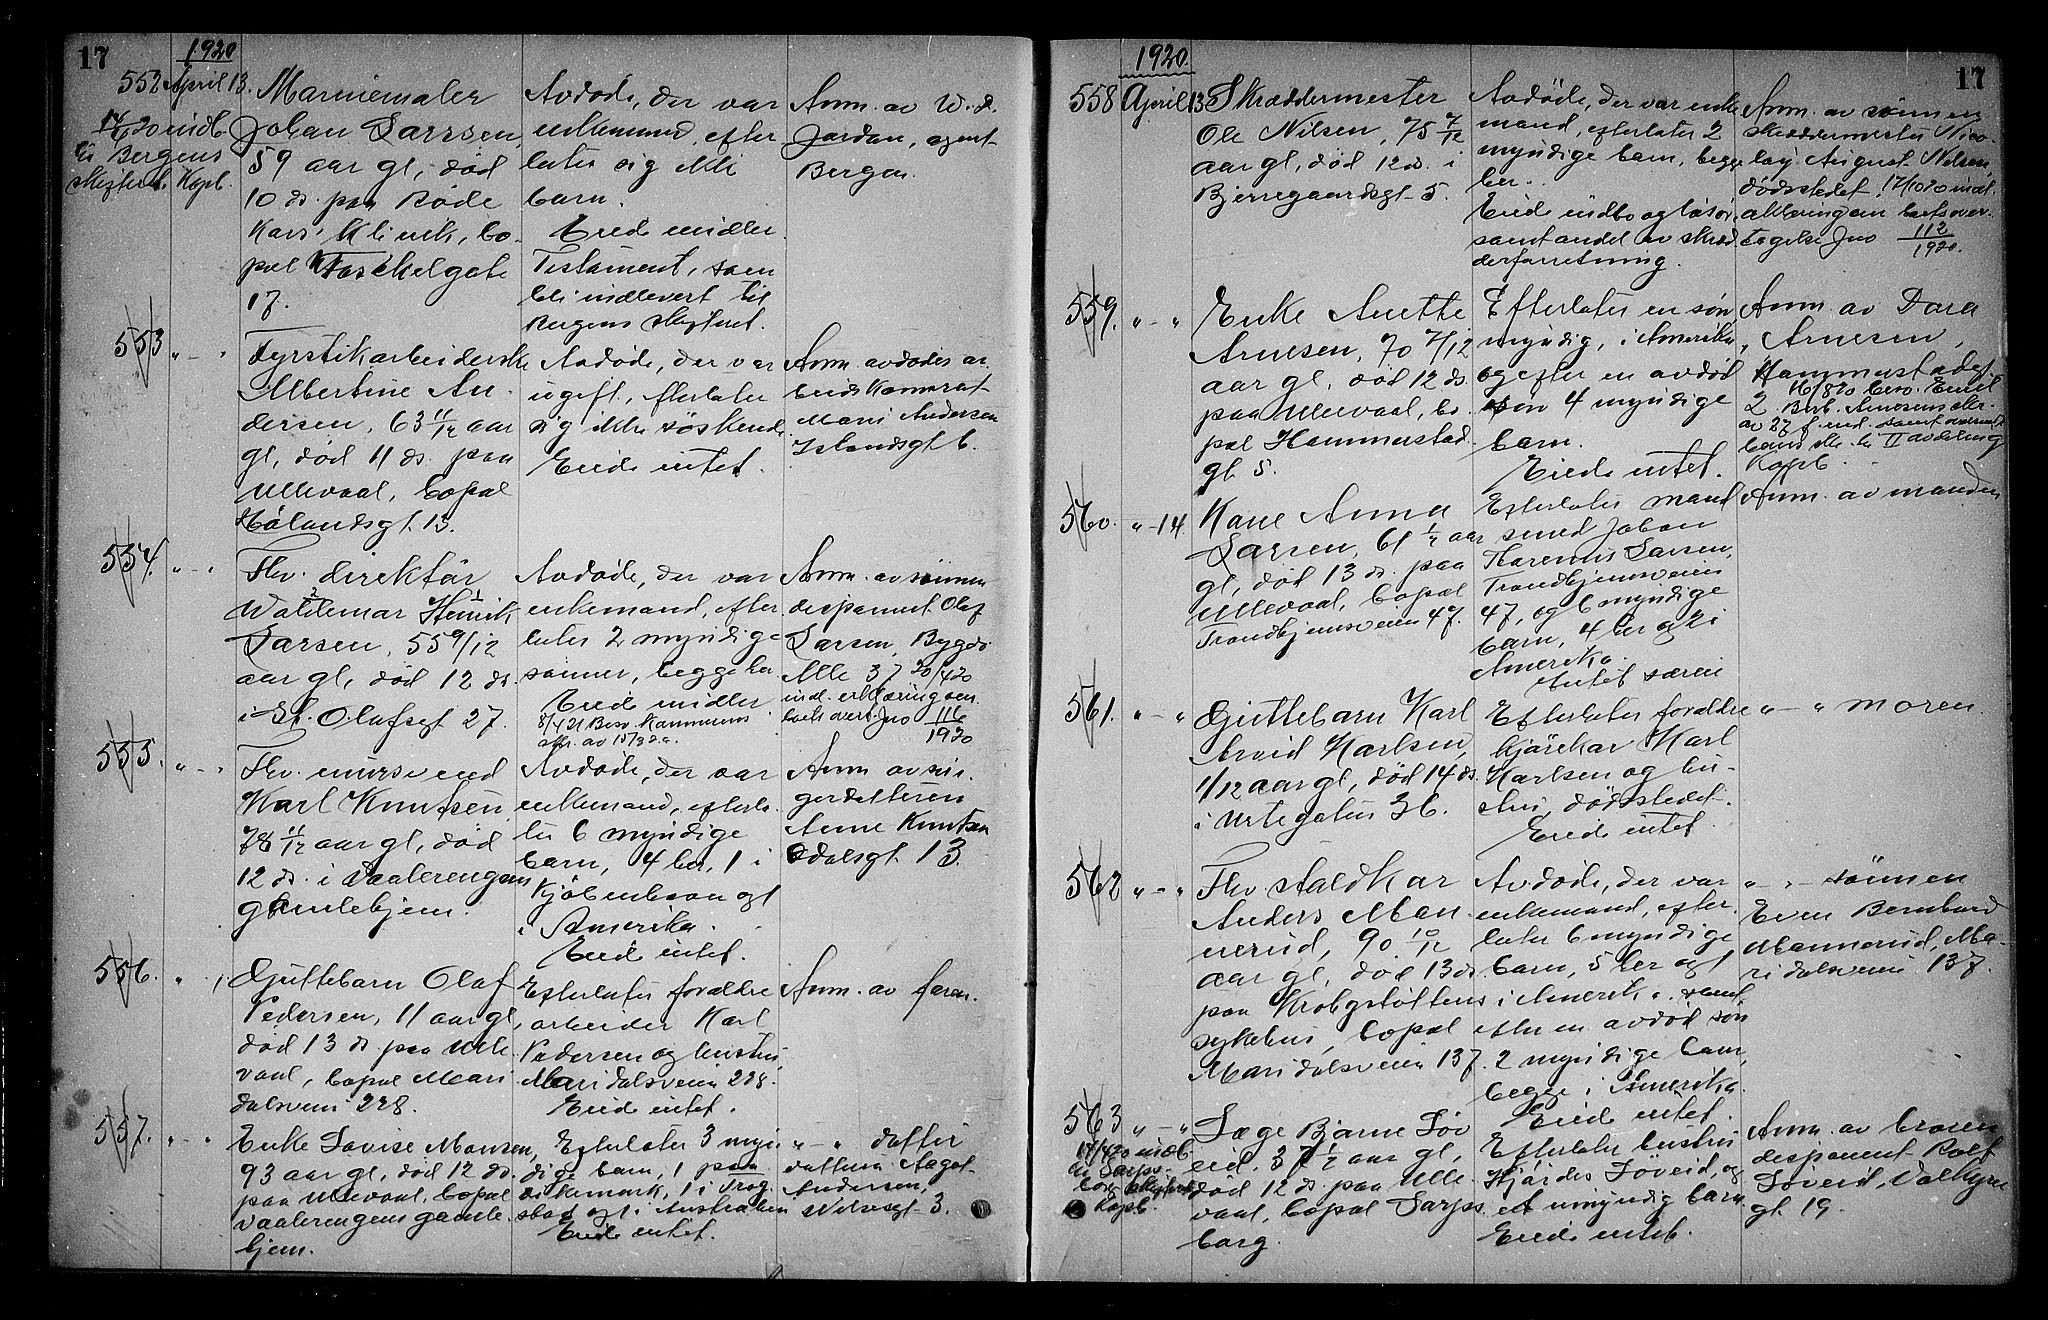 17
1920
552 April 13.
14/4 20 indb.
til Bergens
skifteret. Kopb.
Marinemaler
Johan Larssen,
59 aar gl, död
10 ds. paa Röde
Kors' Klinik, bo-
pæl
17.
Avdöde, der var
enkemand, efter
later sig ikke
barn.
Eiede midler.
Testament, som
bli indlevert til
Bergens skifteret.
Anm. av W. d.
Jordan, agent
Bergen.
553 " - "
Fyrstikarbeiderske
Albertine An-
dersen, 63 11/12 aar
gl, död 11 ds. paa
Ullevaal, bopæl
Hölandsgt. 13.
Avdöde, der var
ugift, efterlater
sig ikke söskende.
Eiede intet.
Anm. avdödes ar-
beidskamerat
Marie Andersen
Islandsgt 6.
554. " - "
Fhv. direktör
Waldemar Henrik
Larsen, 55 9/12
aar gl, död 12 ds.
i St. Olafsgt 27.
Avdöde, der var
enkemand, efter
later 2 myndige
sönner, begge her.
Eiede midler
8/4 21 Besv. Kæmnerens
skr. av 15/3 d.a.
Anm. av sönnen
disponent Olaf
Larsen, Bygdö
Alle 37 20/4 20
indl. erklæring om
boets overt. Jno 116/1920
555. " - "
Fhv. mursvend
Karl Knutsen,
78 11/12 aar gl, död
12 ds. i Vaalerengens
gamlehjem.
Avdöde, der var
enkemand, efterla-
ter 6 myndige
barn, 4 her, 1 i
Kjöbenhavn og 1
i Amerika.
Eiede intet.
Anm. av svi-
gerdatteren
Anne Knutsen
Odalsgt. 13.
556. " "
Guttebarn Olaf
Pedersen, 11 aar gl,
död 13 ds paa Ulle-
vaal, bopæl Mari
dalsveien 228.
Efterlater forældre
arbeider Karl
Pedersen og hustru,
Maridalsveien 228.
Eiede intet.
Anm. av faren.
557. " - "
Enke Lovise Monsen,
93 aar gl, död 12 ds.
paa Ullevaal, bopæl
Vaalerengens gamle-
hjem.
Efterlater 3 myn-
dige barn, 1 paa
Dikemark, 1 i Trög-
stad og 1 i Australien
Eiede intet.
" - " datter
datteren Aagot
Andersen,
Nilsesgt 3.
1920.
17
558 April 13
Skræddermester
Ole Nilsen, 75 7/12
aar gl, död 12 ds. i
Bjerregaardsgt 5.
Avdöde, der var enke
mand, efterlater 2
myndige barn, begge
her.
Eiede indbo og lösöre
samt andel av skræd-
derforretning.
Anm. av sönnen
skræddermester Nico-
lay August Nilsen,
dödsstedet. 17/10 20 indl.
erklæring om boets over-
tagelse Jno 112/1920.
559. " - "
Enke Anette
Arnesen, 70 7/12
aar gl, död 12 ds.
paa Ullevaal, bo-
pæl Hammerstad
gt. 5.
Efterlater en sön
myndig, i Amerika,
og efter en avdöd
sön 4 myndige
barn.
Eiede intet.
Anm. av Dora
Arnesen,
Hammerstadgt.
16/8 20 besv. Emil
2 Arnesens skr.
av 27 f. md. samt oversendt
barns skr. til II avdeling
Kopb.
560. " - 14.
Kone Anna
Larsen, 61 1/2 aar
gl, död 13 ds. paa
Ullevaal, bopæl
Trondhjemsveien 47.
Efterlater mand
smed Johan
Larsen,
Trondhjemsveien
47, og 6 myndige
barn, 4 her og 2 i
Amerika.
Intet særeie
Anm. av manden
561. " - "
Guttebarn Karl
Arvid Karlsen,
1/12 aar gl, död 14 ds.
i Urtegaten 36.
Efterlater forældre
kjörekar Karl
Karlsen og hu-
stru, dödsstedet.
Eiede intet.
" - " moren.
562 " - "
Fhv staldkar
Anders Man-
nerud, 90 10/12
aar gl, död 13 ds.
paa Krohgstöttens
sykehus, bopæl
Maridalsveien 137.
Avdöde, der var
enkemand, efter-
later 6 myndige
barn, 5 her og 1
i Amerika, samt
efter en avdöd sön
2 myndige barn,
begge i Amerika.
Eiede intet.
" - " sönnen
Even Bernhard
Mannerud, Ma-
ridalsveien 137.
563 " - "
17/4 20 indb.
til Sarps-
borg skifteret
Kopb.
Læge Bjarne Löv
eid, 37 1/2 aar gl,
död 12 ds. paa Ulle-
vaal, bopæl Sarps-
borg.
Efterlater hustru
Hjördis Löveid, og
et umyndig barn.
Eiede intet.
Anm. av broren
disponent Rolf
Löveid, Valkyrie
gt. 19.